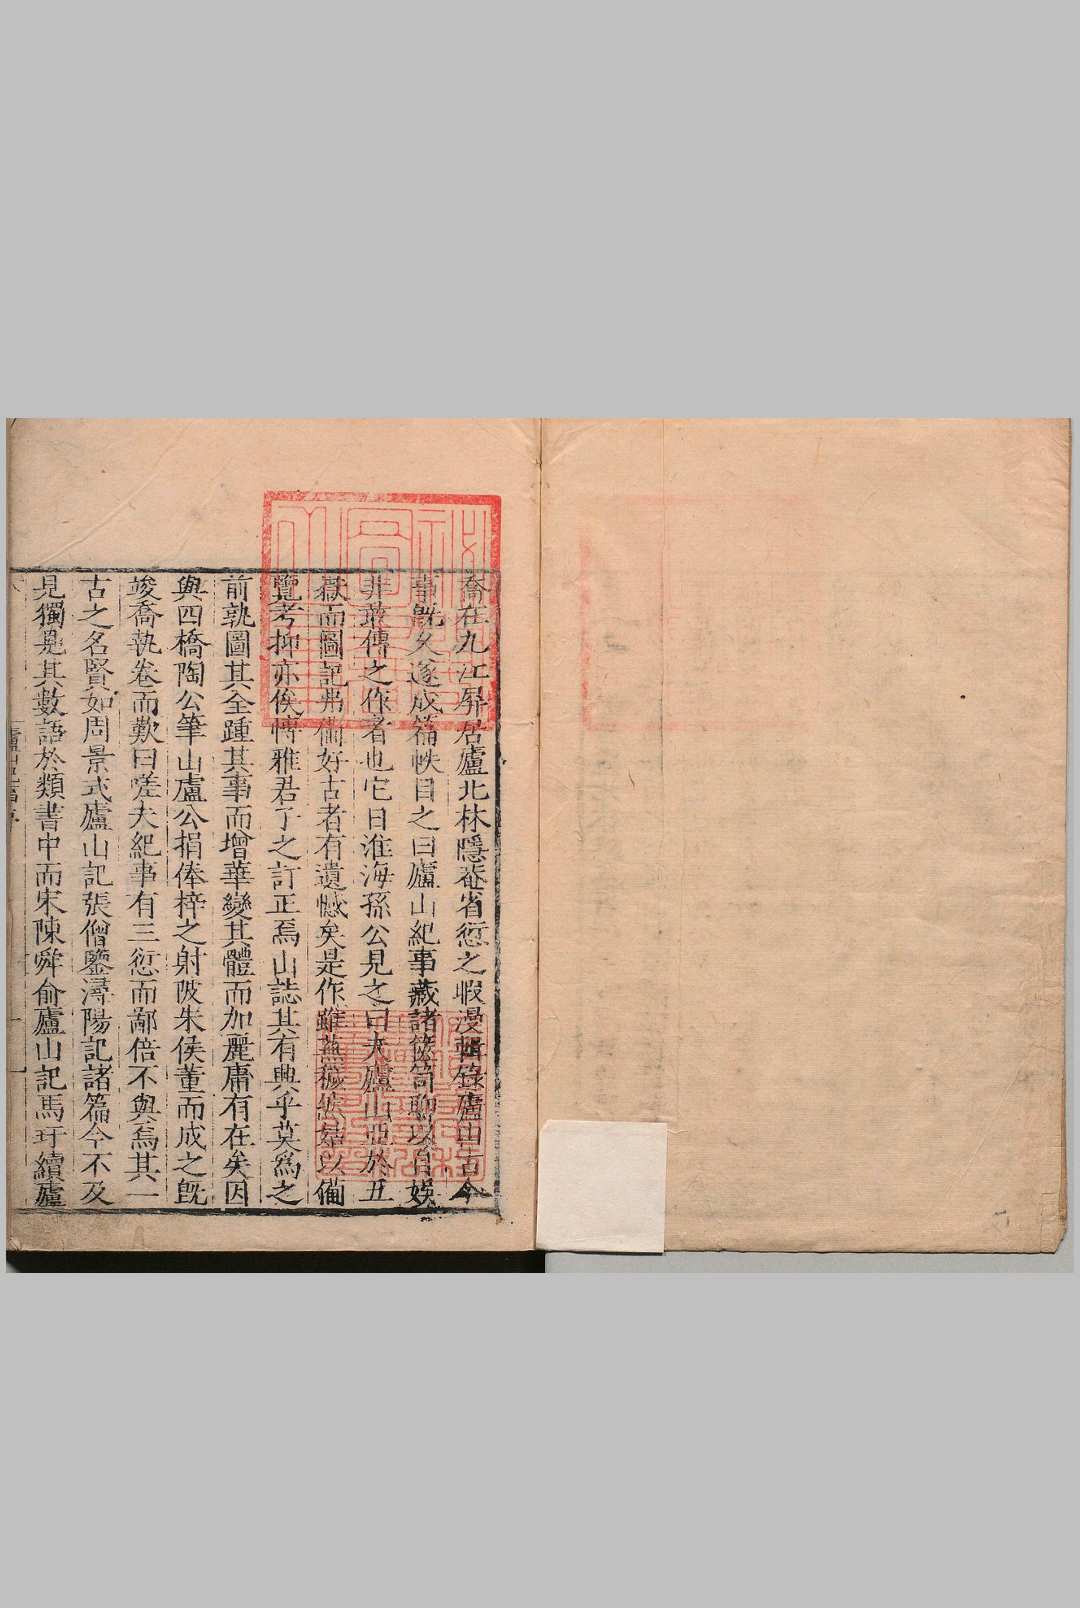 喬在九江屏居廬北林隱菴省愆之暇漫輯錄廬山古今
事既久遂成篇帙目之曰廬山紀事藏諸篋笥聊以自娛
非敢傳之作者也它日淮海孫公見之曰夫廬山亞於五
嶽而圖記弗備好古者有遺憾矣是作雖蕪穢然姑以備
覽考抑亦俟博雅君子之訂正焉山誌其有興乎莫為之
前孰圖其全踵其事而增華變其體而加麗庸有在矣因
與四橋陶公筆山盧公捐俸梓之射陂朱侯董而成之既
竣喬執卷而歎曰嗟夫紀事有三愆而鄙倍不與焉其一
古之名賢如周景式廬山記張僧鑒潯陽記諸篇今不及
見獨見其數語於類書中而宋陳舜俞廬山記馬玗續廬